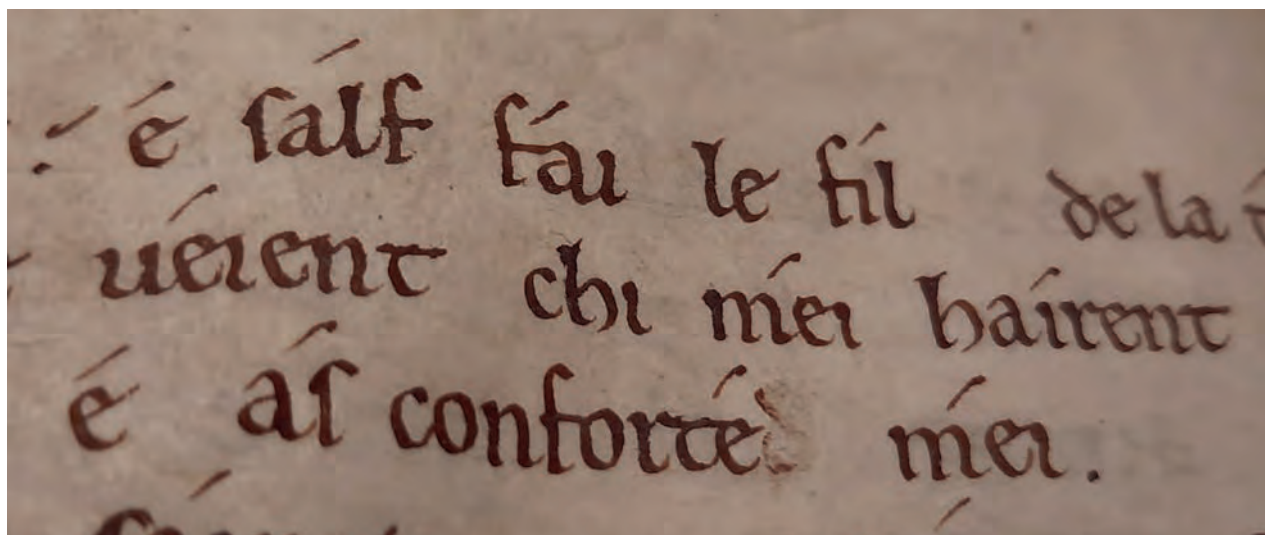 é ſálf fái le fíl de la
uéient chi méi haírent
é áſ conforté méi.